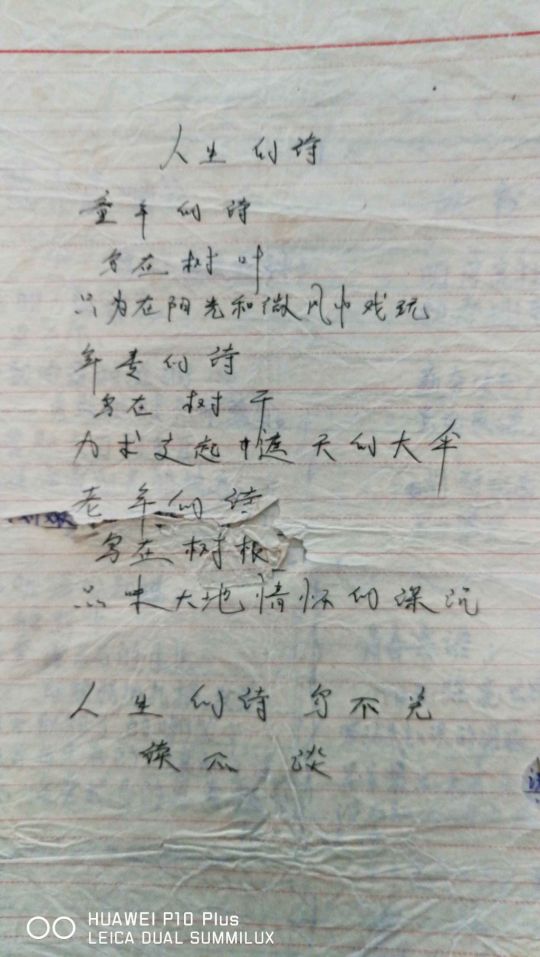 人生的诗
童年的诗
写在树叶
只为在阳光和微风中戏玩
年青的诗
写在树干
力求支起遮天的大伞
老年的诗
写在树根
品味大地情怀的深沉
人生的诗写不完
读不
HUAWEI P10 Plus
LEICA DUAL SUMMILUX